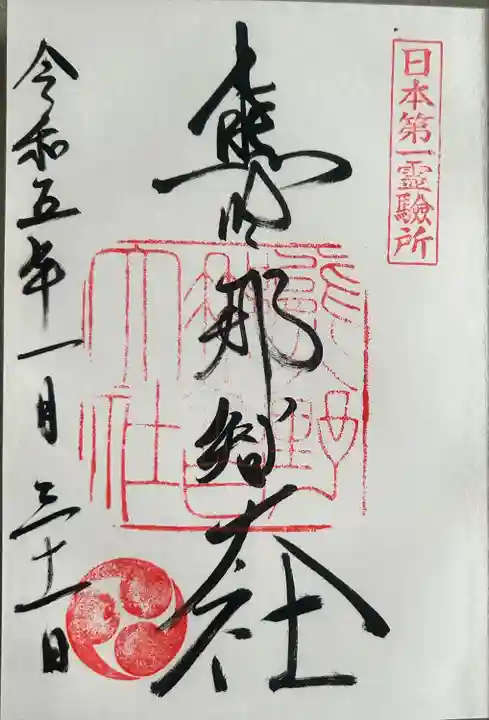 日本第一霊験所
熊野那智大社
熊野那智大社
令和五年一月三十一日